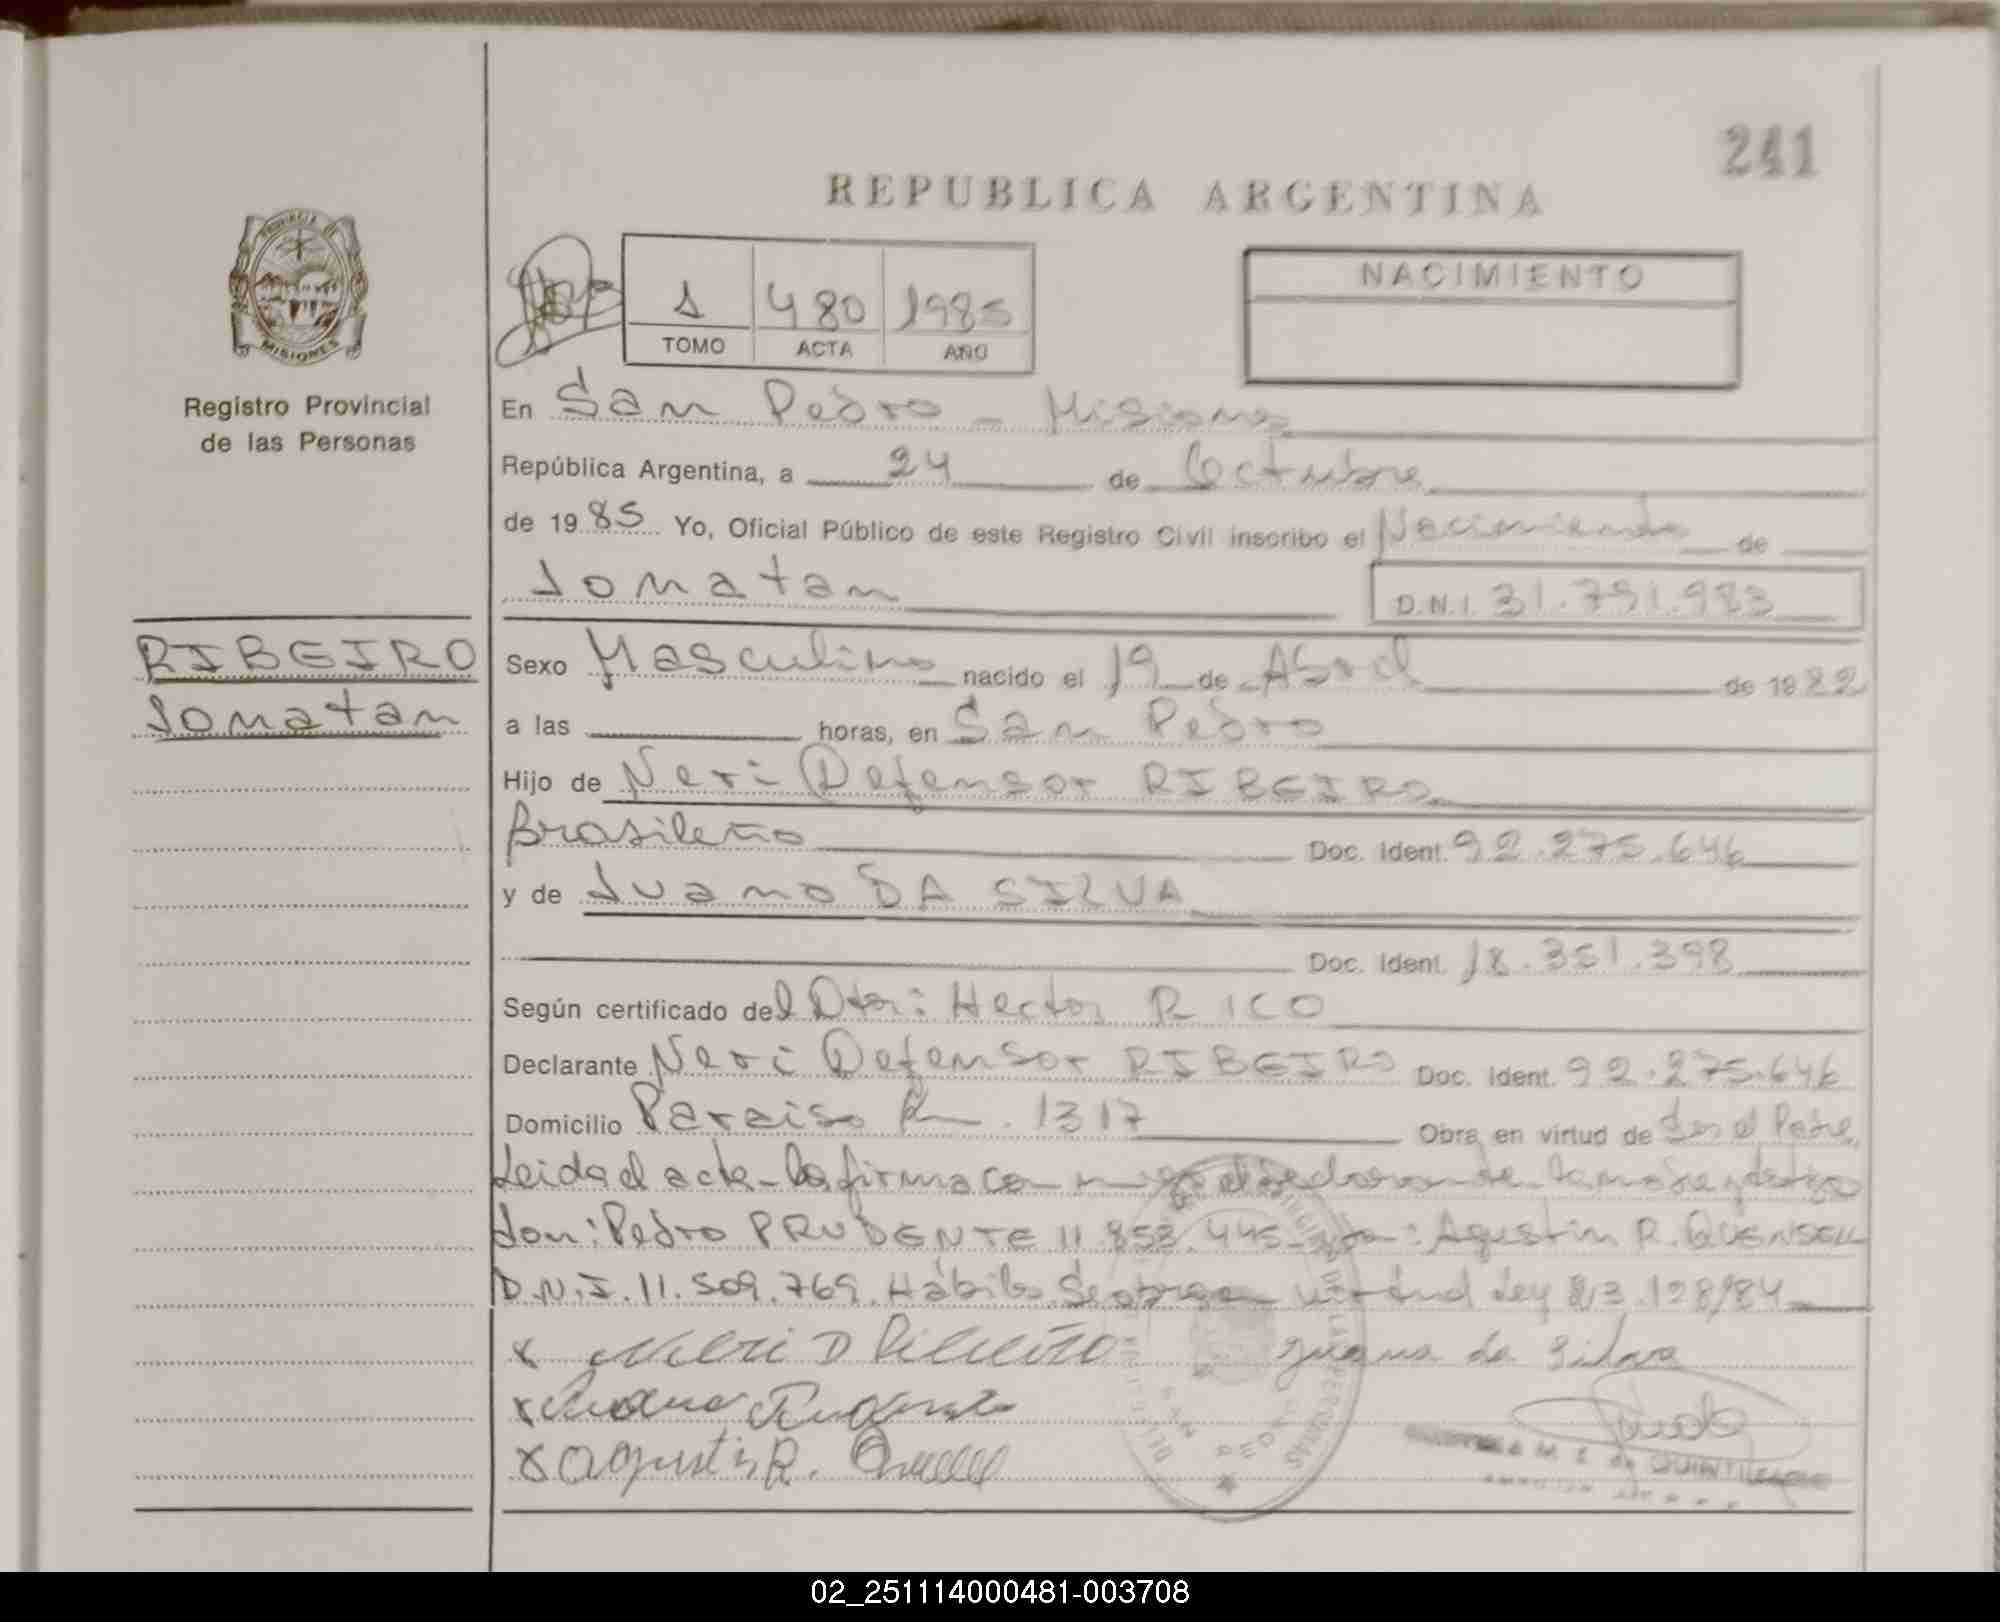 241
REPUBLICA ARGENTINA
PROVINCIA DE
MISIONES
Registro Provincial
de las Personas
1 480 1985
TOMO ACTA AÑO
NACIMIENTO
En San Pedro - Misiones
República Argentina, a 24 de Octubre
de 1985 Yo, Oficial Público de este Registro Civil inscribo el Nacimiento de
Jonatan
D.N.I. 31.791.983
RIBEIRO
Jonatan
Sexo Masculino nacido el 19 de Abril de 1982
a las horas, en San Pedro
Hijo de Neri Defensor RIBEIRO
Brasileño Doc. Ident. 92.275.646
y de Juana DA SILVA
Doc. Ident. 18.351.398
Según certificado del Dtor: Hector RICO
Declarante Neri Defensor RIBEIRO Doc. Ident. 92.275.646
Domicilio Paraiso K. 1317 Obra en virtud de Ser el Padre
Leida el acta - la firma con migo el declarante la madre y testigo
don: Pedro PRUDENTE 11.853.445 don: Agustin R. QUENSELL
D.N.I. 11.509.769. Hábiles Se obra en virtud Ley 23.128/84
x Neri D Ribeiro Juana da Silva
x Prudente
x Agustin R.
de QUINTILLA
02_251114000481-003708